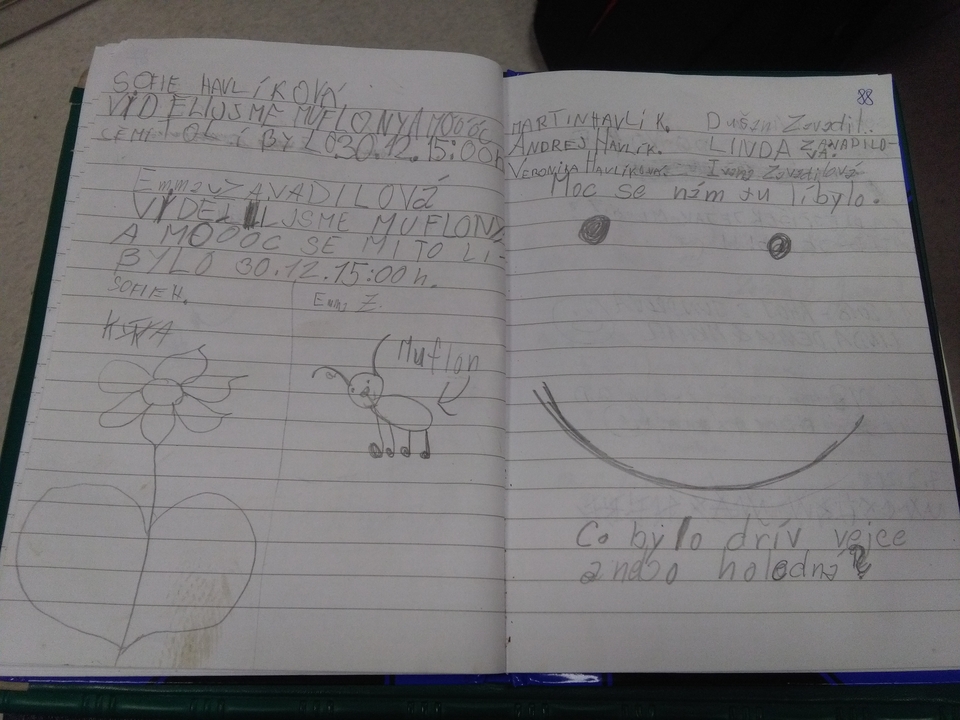 SOFIE HAVLÍKOVÁ
VIDĚLIJSME MUFLONYA MÓÓÓC
SEMI TO LÍBYLO30.12.15:00h
Emma ZAVADILOVÁ
VIDĚLIJSME MUFLONY
A MOOOC SE MI TO LI-
BYLO 30.12.15:00h.
SOFIE H.
Emma Z.
Muflon
88
MARTIN HAVLÍK. Dušan Zavadil.
ANDREJ HAVLÍK. LINDA ZAVADILO-
VÁ.
VERONIKA HAVLÍKOVÁ Zavadilová
Moc se nám tu líbylo.
Co bylo dřív vejce
anebo holedná?